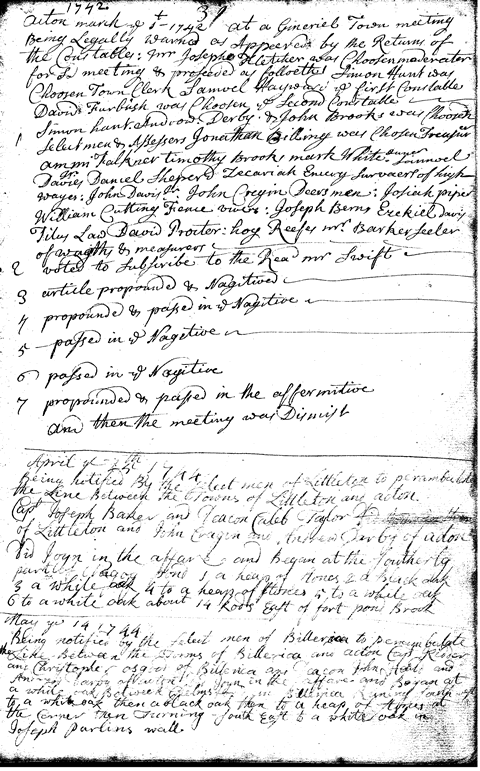 1742 39
acton march ye 1st 1742 at a Gineriel Town meeting
Being Legally warned as Appeered by the Returns of
the Constables: mr Joseph Fletcher was Choosen moderater
for Sd meeting & proseded as folloeth Simon Hunt was
Choosen Town Clerk Samuel Hayward ye first Constable
David Furbush was Choosen ye Second Constable
1 Simon hunt Andrew Derby & John Brooks was Choosen
Select men & Assessers Jonathan Billing was Chosen Treasurr
ammi Falkner timothy Brook mark White Juner Samuel
Davis Daniel Sheperd Zecariah Emery Survaers of high
wayes: John Davis Jr John Cregin Deersmen: Josiah piper
William Cutting Fience viuers: Joseph Berns Ezekiel Davis
Titus Law David Procter: hog Reefes mr Barker seeler
of wagths & measurers
2 voted to Subscribe to the Read mr Swift
3 article propounded & Nagitived
4 propounded & passed in ye Nagitive
5 passed in ye Nagetive
6 passed in ye Nagitive
7 propounded & passed in the affermitive
and then the meeting was Dismist
April ye 1744
Being notified By the Select men of Littleton to perambulate
the Line Between the Towns of Littleton and acton.
Capt Joseph Baker and Deacon Caleb Taylor
of Littleton and John Cragin and Andrew Derby of acton
Did Joyn in the affare and Began at the Southerly
pond 1 a heap of stones 2 a Black oak
3 a white oak 4 to a heap of stones 5 to a white oak
6 to a white oak about 14 Rods East of fort pond Brook
May ye 14 1744
Being notified by the Select men of Billerica to perambelate
the Line Between the Towns of Billerica and acton Capt
and Christople osgod of Billerica and Deacon John and
Andrew Darby of acton Did Joyn in the affare and Began at
a white oak Between Chelmsford and Billerica Runing South
to a white oak then a black oak then to a heap of stones at
the Corner then Turning South East to a white oak in
Joseph Parlins wall